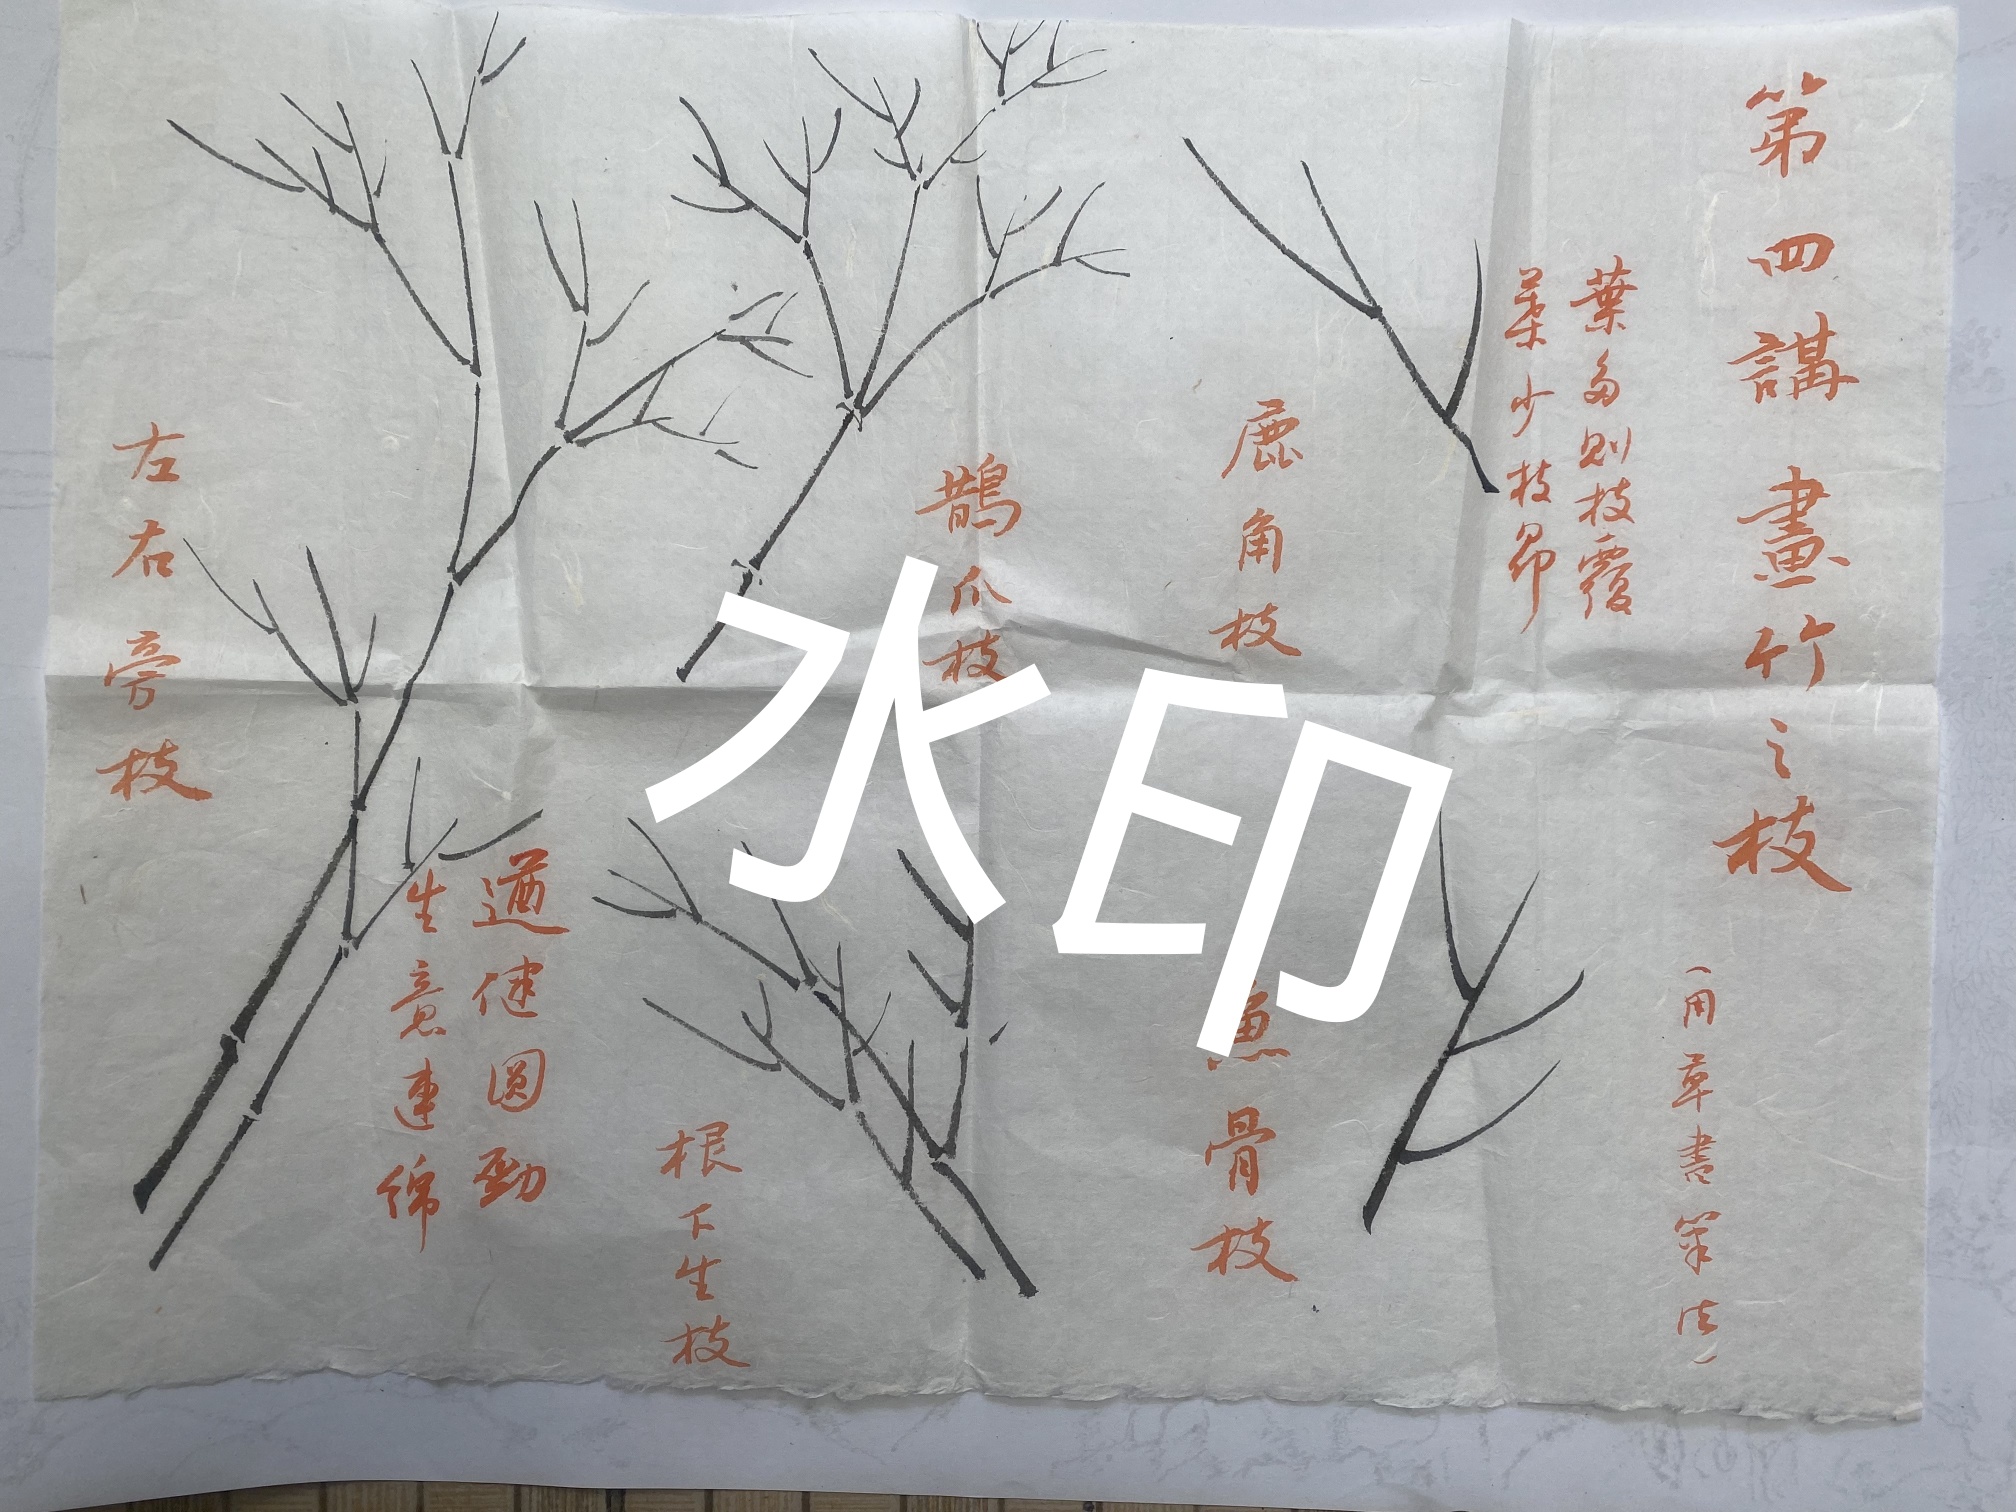 第四講畫竹之枝
（用草書筆法）
葉多則枝覆
葉少枝昂
鹿角枝
魚骨枝
鵲爪枝
根下生枝
遒健圓勁
生意連綿
左右旁枝
水印